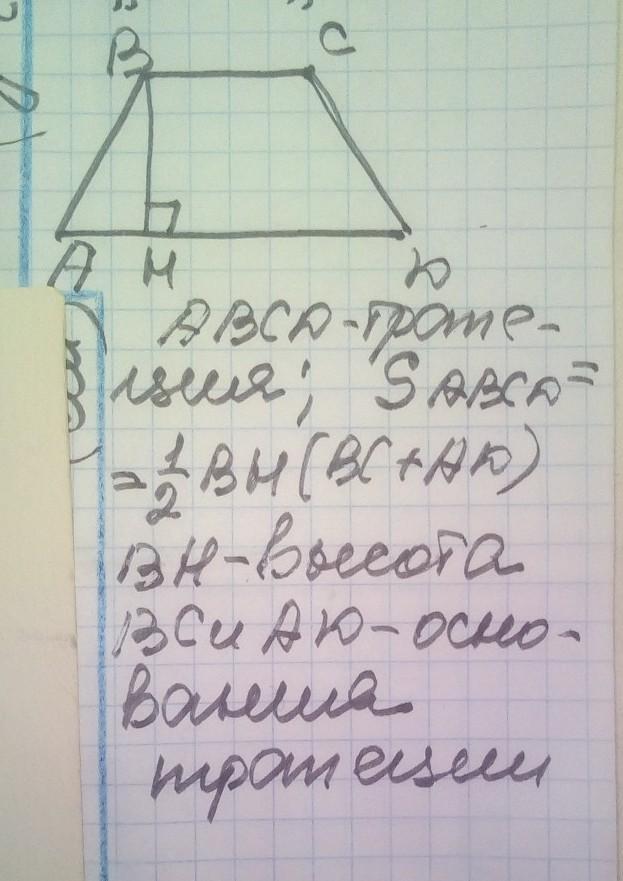 B C
A H D
ABCD-трапе-
ция; SABCD=
=1/2 BH(BC+AD)
BH-высота
BC и AD-осно-
вания
трапеции